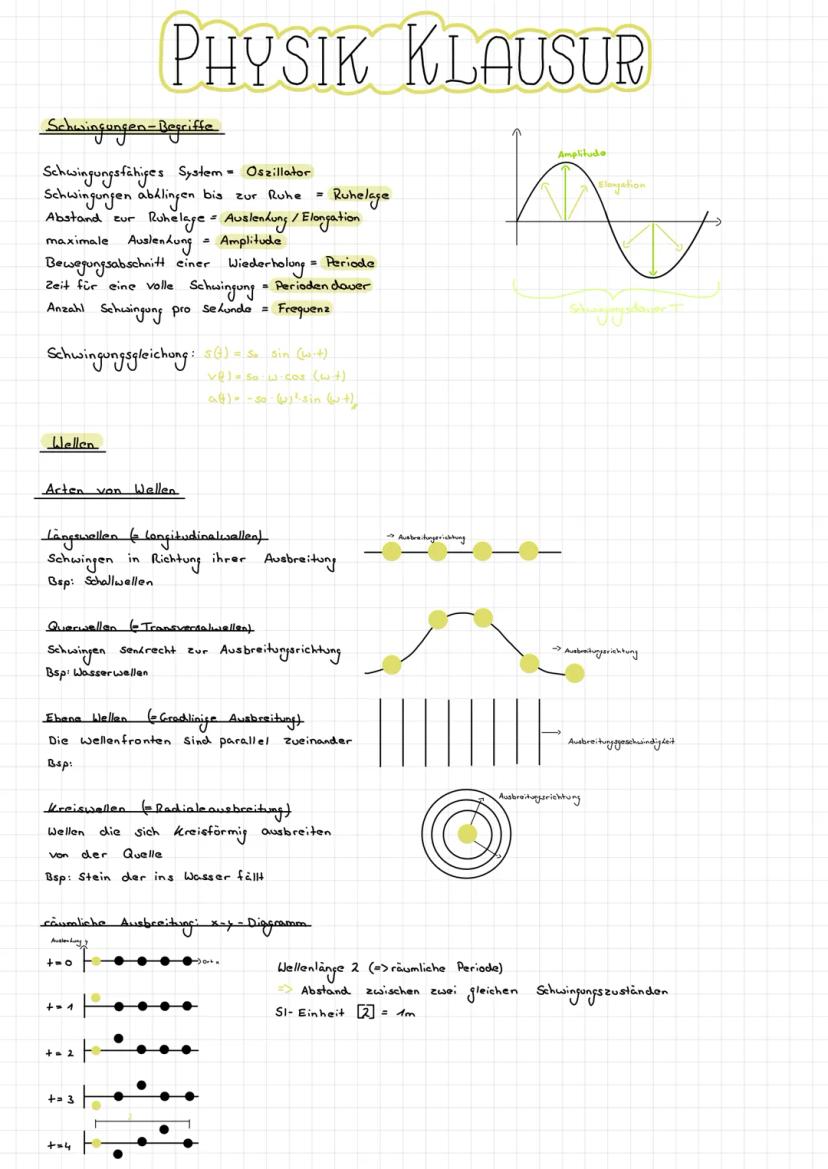 PHYSIK KLAUSUR
Schwingungen-Begriffe
Schwingungsfähiges System = Oszillator
Schwingungen abklingen bis zur Ruhe = Ruhelage
Abstand zur Ruhelage = Auslenkung / Elongation
maximale Auslenkung = Amplitude
Bewegungsabschnitt einer Wiederholung = Periode
Zeit für eine volle Schwingung = Periodendauer
Anzahl Schwingung pro sekunde = Frequenz
Amplitude
Elongation
Schwingungsdauer T
Schwingungsgleichung: s(t) = so sin (w·t)
v(t) = so·w·cos (w·t)
a(t) = -so·(w)²·sin (w·t)
Wellen
Arten von Wellen
Längswellen (= Longitudinalwellen)
Schwingen in Richtung ihrer Ausbreitung
Bsp: Schallwellen
→ Ausbreitungsrichtung
Querwellen (= Transversalwellen)
Schwingen senkrecht zur Ausbreitungsrichtung
Bsp: Wasserwellen
→ Ausbreitungsrichtung
Ebene Wellen (= Gradlinige Ausbreitung)
Die wellenfronten sind parallel zueinander
Bsp:
Ausbreitungsgeschwindigkeit
Kreiswellen (= Radiale ausbreitung)
Wellen die sich kreisförmig ausbreiten
von der Quelle
Bsp: Stein der ins Wasser fällt
Ausbreitungsrichtung
räumliche Ausbreitung: x-y-Diagramm
Auslenkung y
t=0
Ort x
t=1
t=2
t=3
t=4
λ
Wellenlänge λ (=> räumliche Periode)
=> Abstand zwischen zwei gleichen Schwingungszuständen
SI-Einheit [λ] = 1m